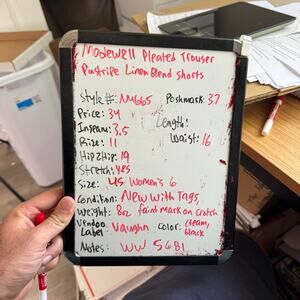 Madewell Pleated Trouser
Pinstripe Linen Blend Shorts
Style #: NY665 Poshmark: 37
Price: 34 Length:
Inseam: 3.5 Waist: 16
Rize: 11
Hip 2 hip: 19
Stretch: yes
Size: US Women's 6
Condition: New with Tags,
Weight: 8oz faint mark on crotch
Vendoo Label Vaughn color: cream, black
Notes: WW 5681